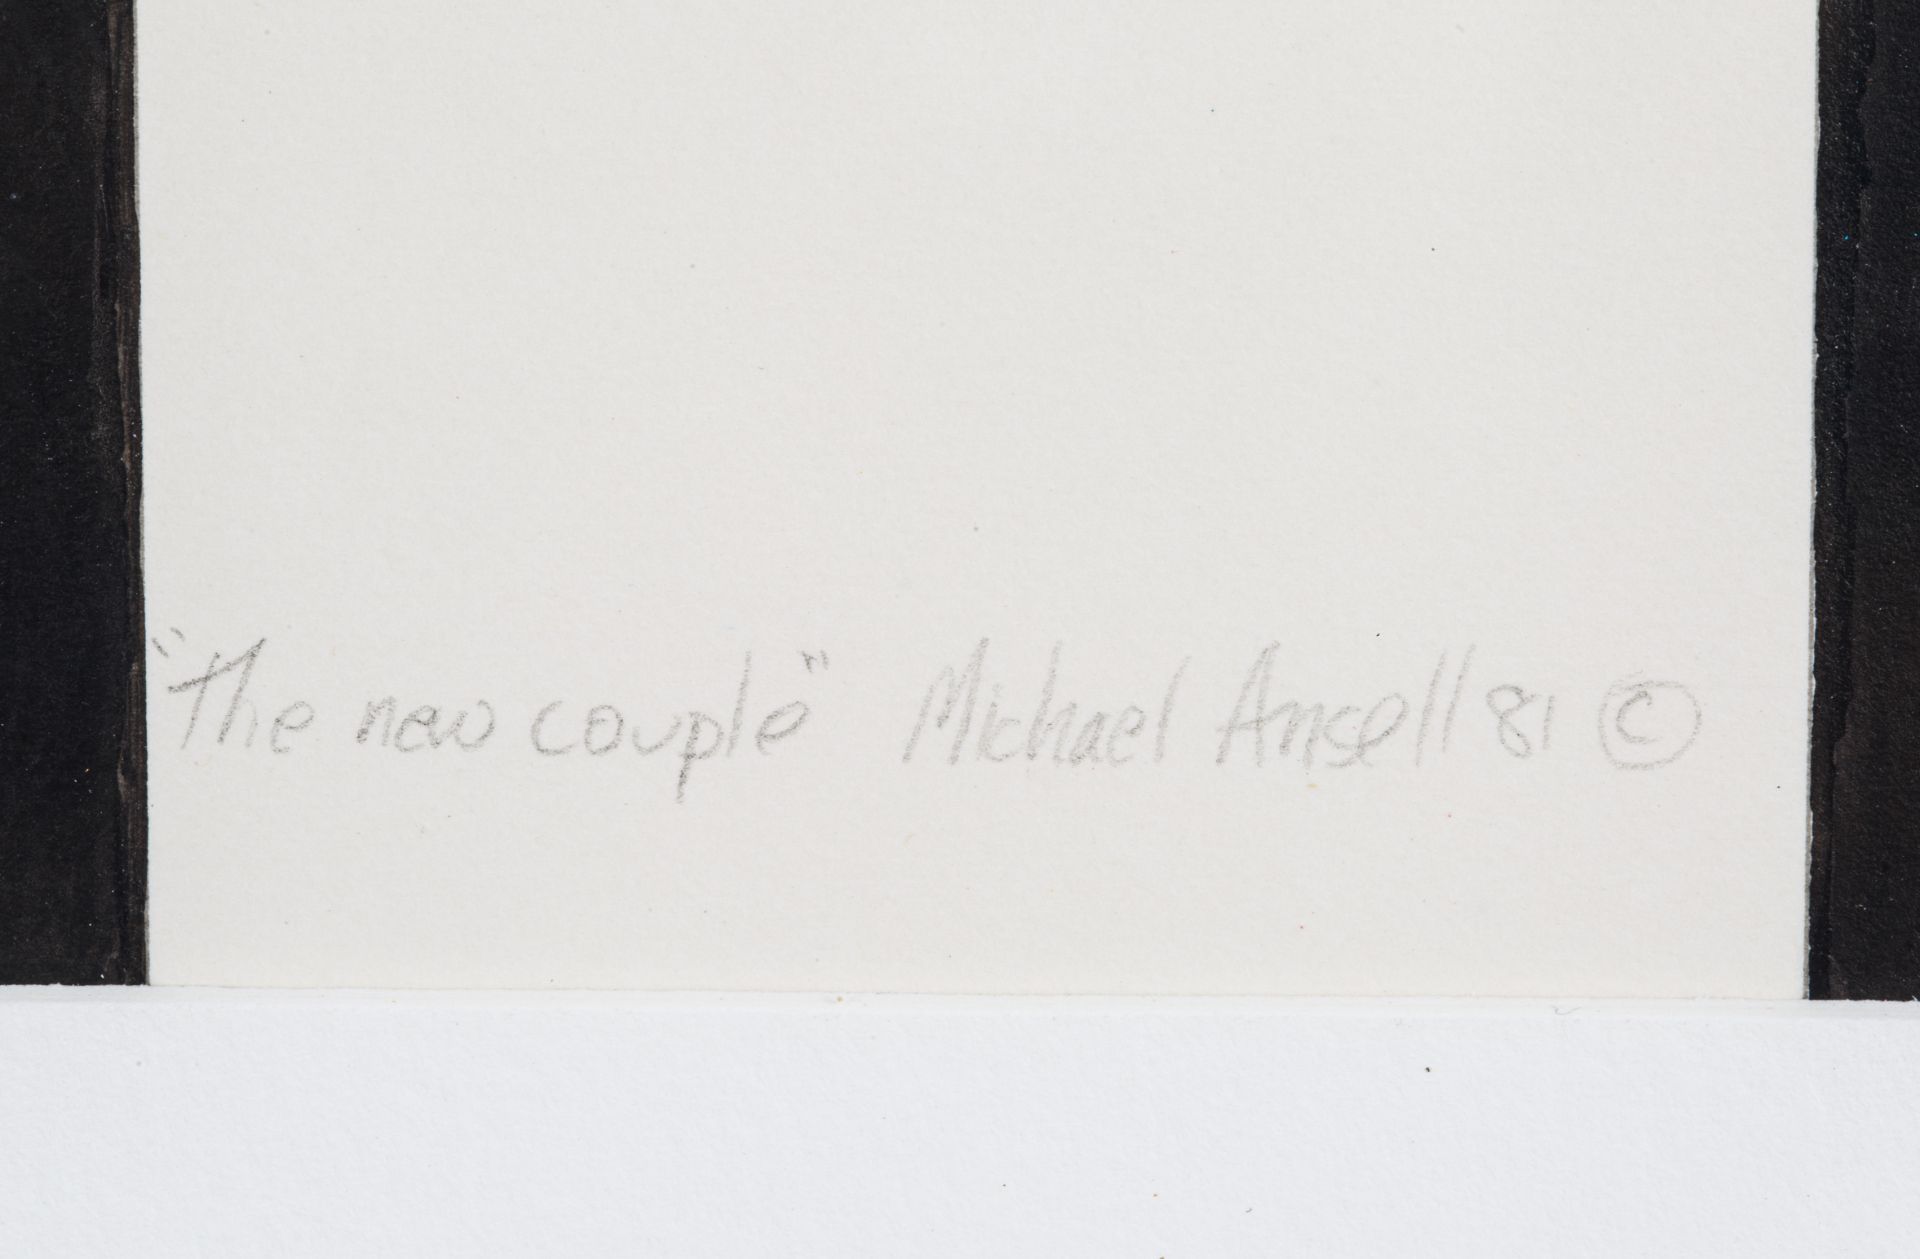 "The new couple" Michael Ansell 81 ©